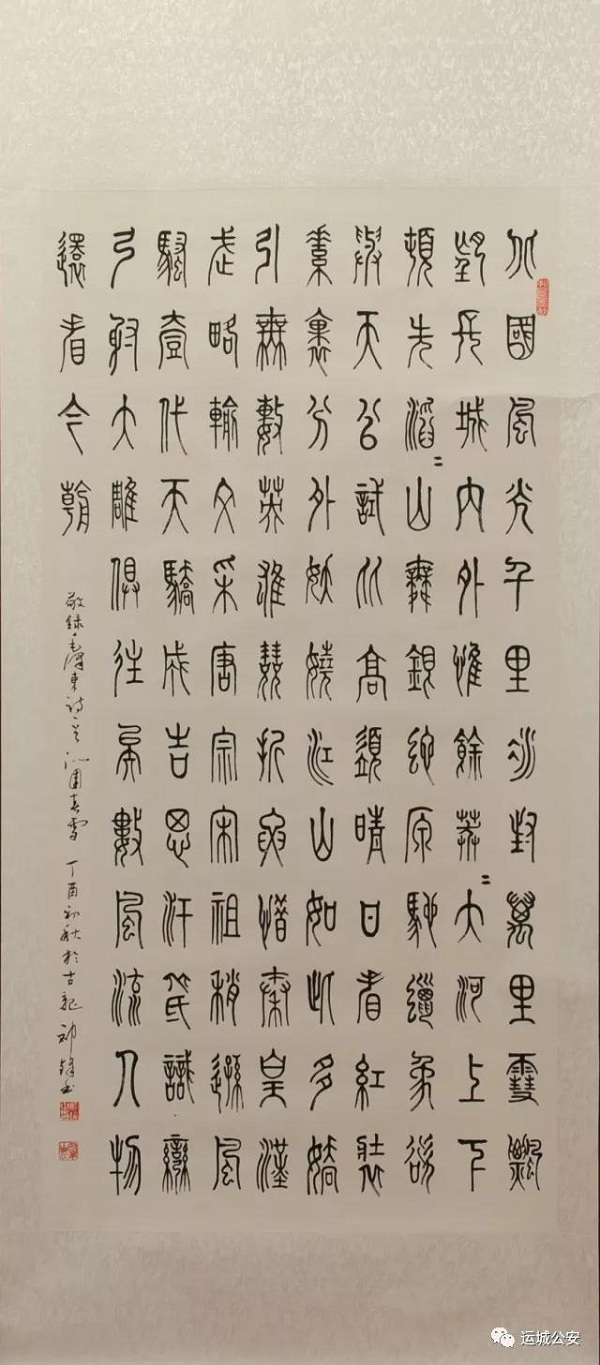 北國風光千里冰封萬里雪飄
望長城內外惟餘莽=大河上下
頓失滔=山舞銀蛇原馳蠟象欲
與天公試比高須晴日看紅裝
素裹分外妖嬈江山如此多嬌
引無數英雄競折腰惜秦皇漢
武略輸文采唐宗宋祖稍遜風
騷壹代天驕成吉思汗識彎
弓射大雕俱往矣數風流人物
還看今朝
敬録毛澤東詩沁園春雪 丁酉初秋於古
运城公安